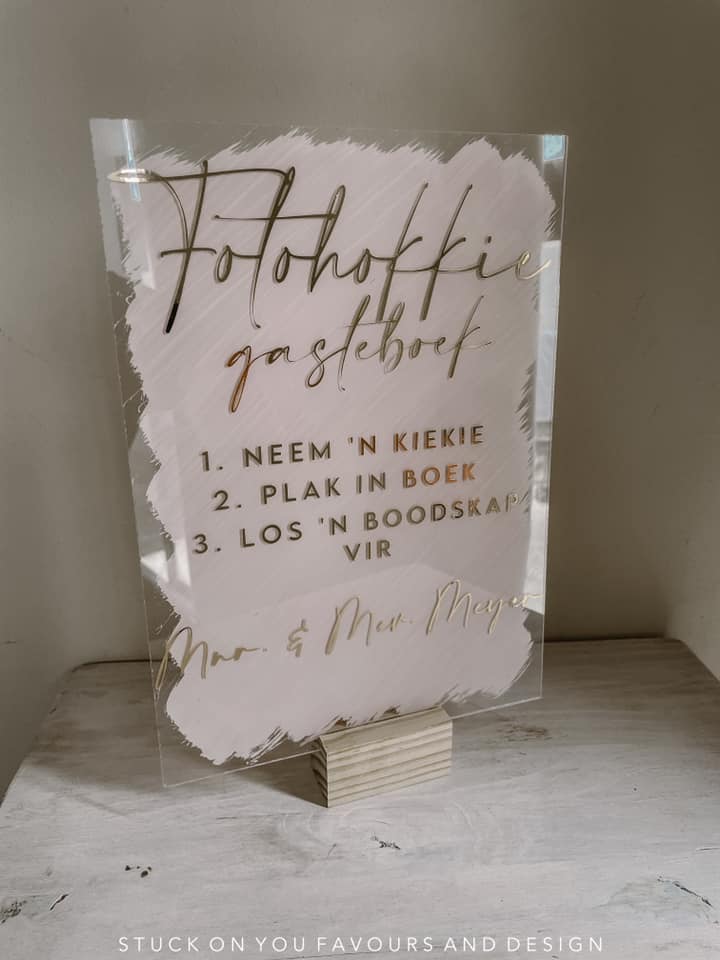 Fotohokkie
gasteboek
1. NEEM 'N KIEKIE
2. PLAK IN BOEK
3. LOS 'N BOODSKAP
VIR
Mnr. & Mev. Meyer
STUCK ON YOU FAVOURS AND DESIGN